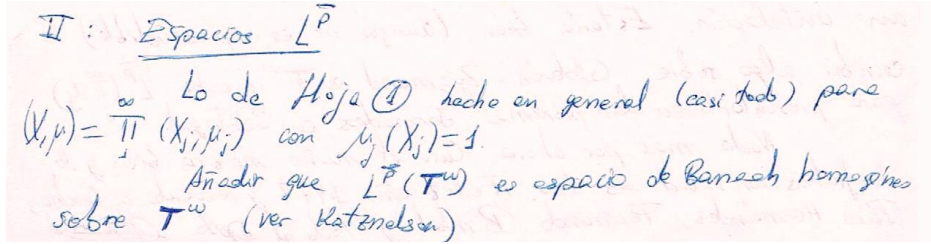 II : Espacios L^p̄
Lo de Hoja ① hecho en general (casi todo) para
(X,μ) = ∏_1^∞ (X_j, μ_j) con μ_j(X_j)=1.
Añadir que L^p̄(T^ω) es espacio de Banach homogéneo
sobre T^ω (ver Katznelson)